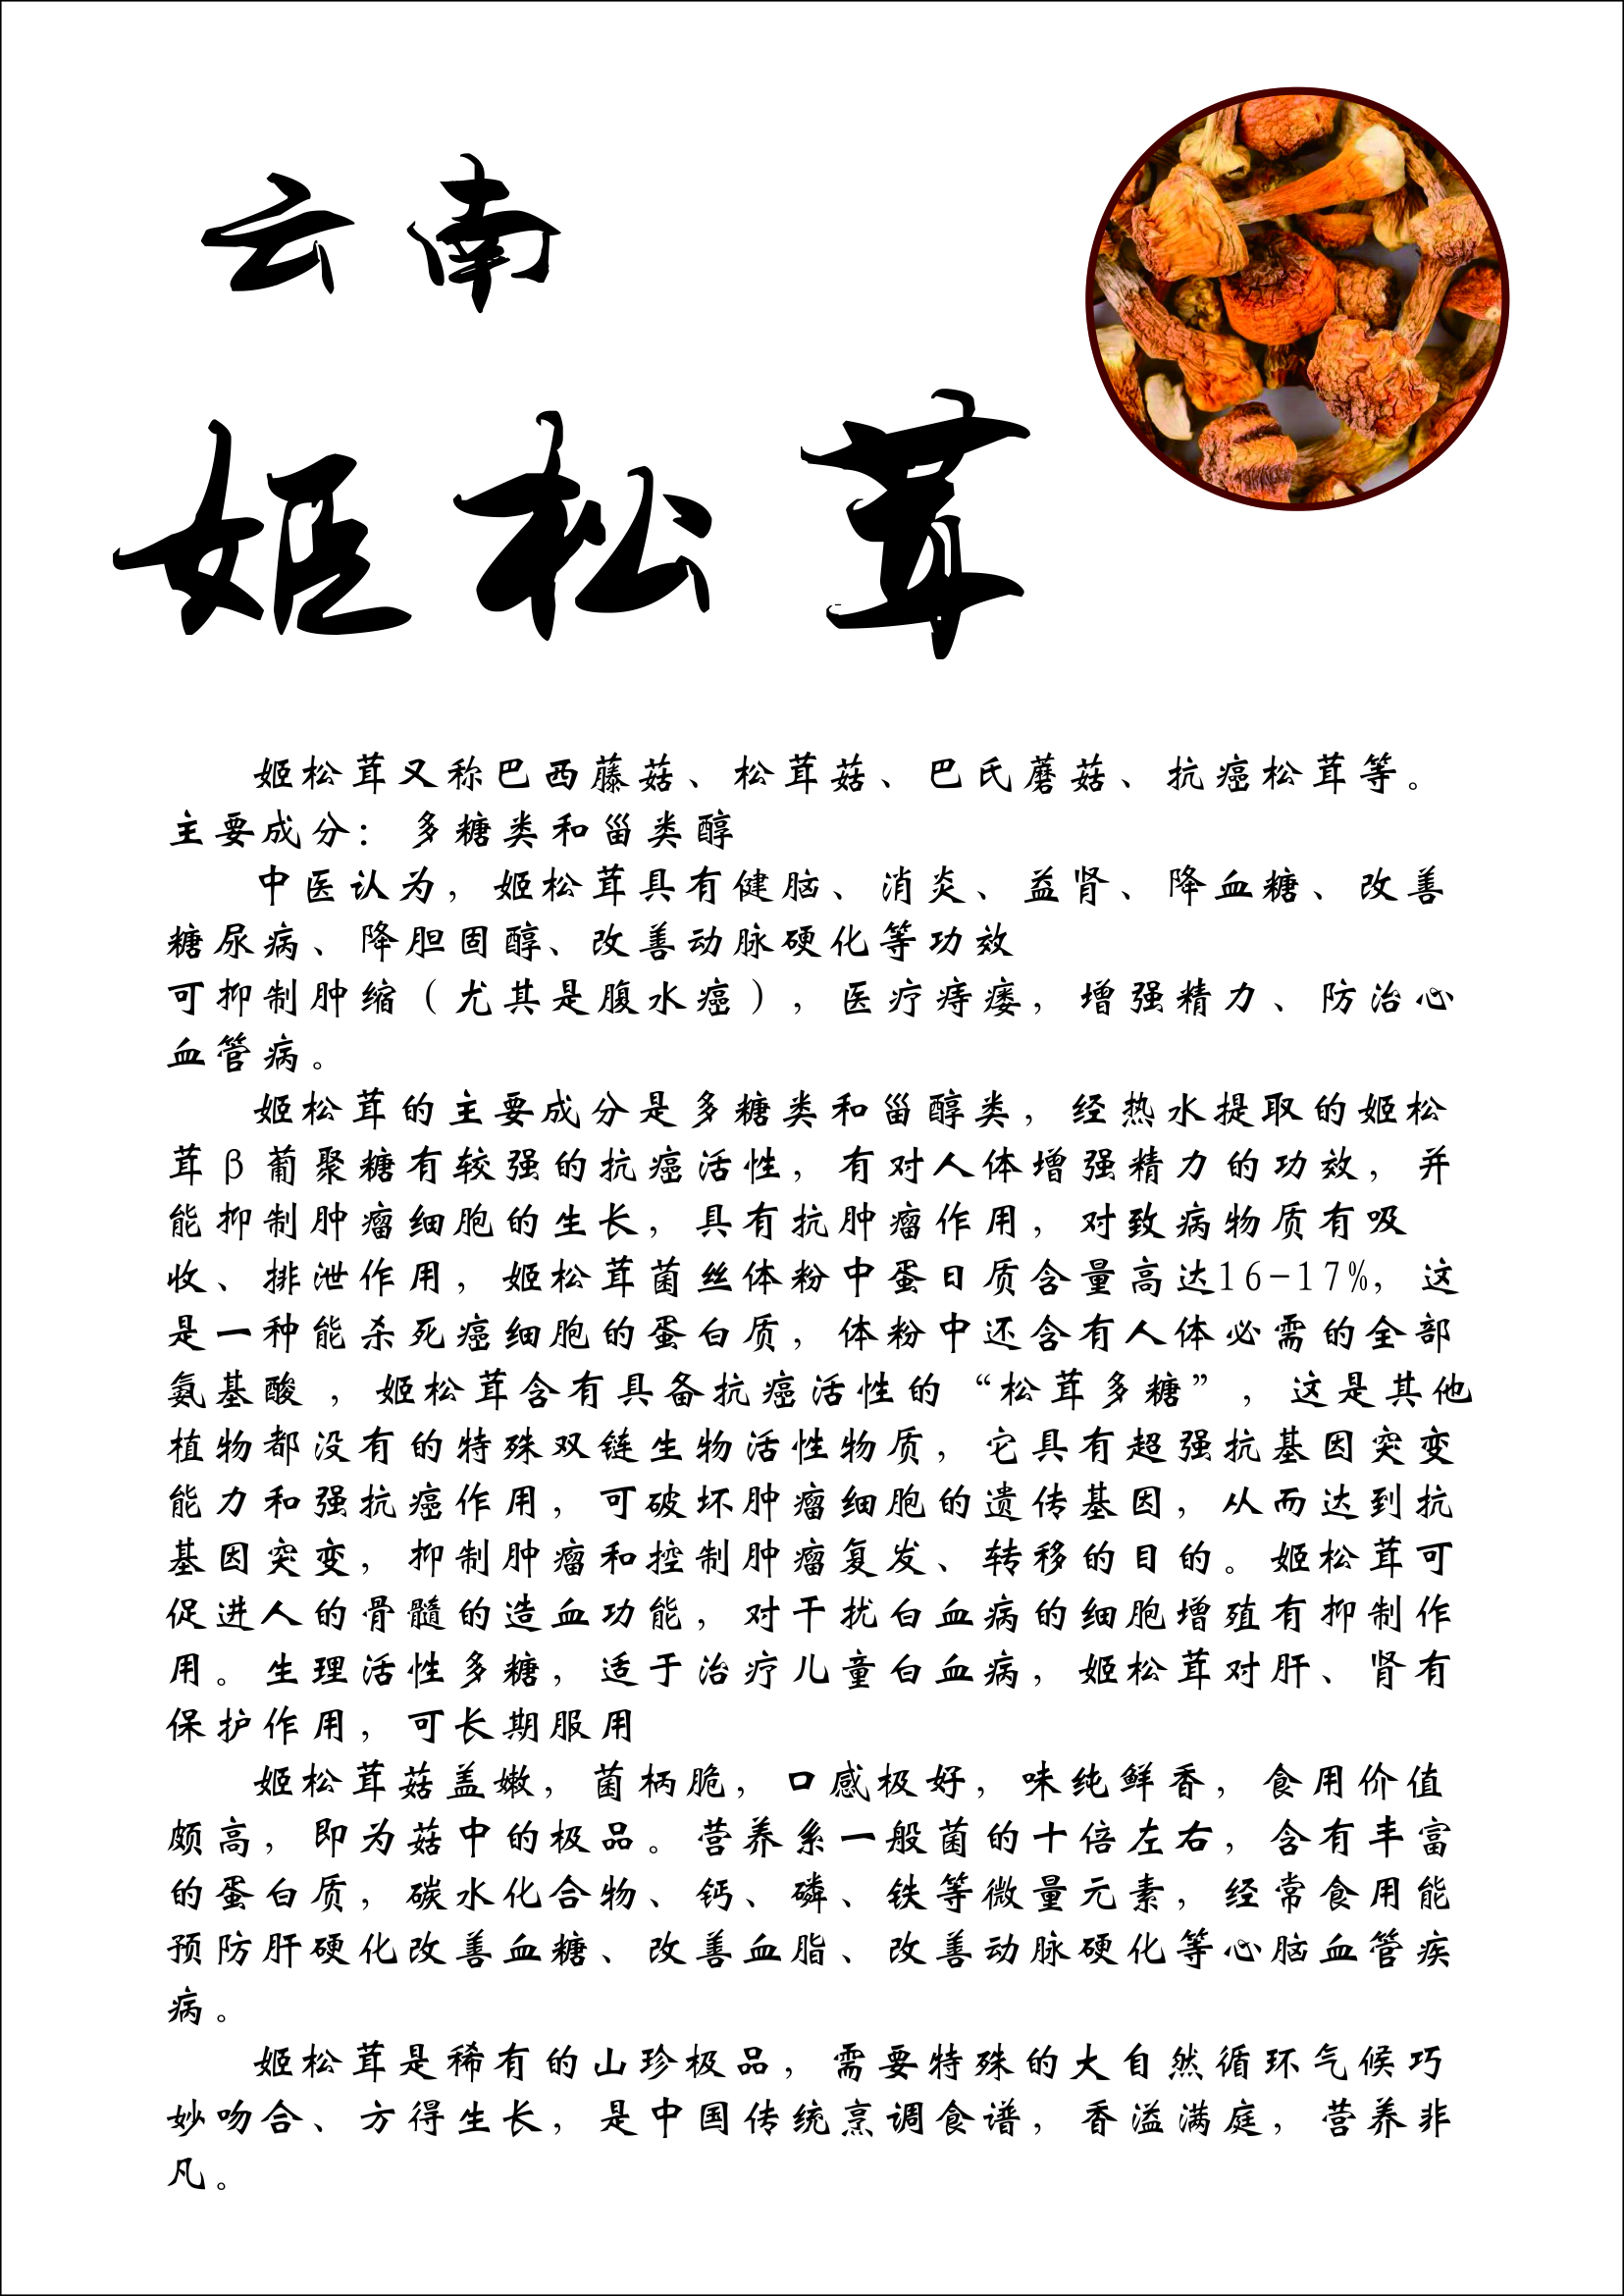 云南
姬松茸
姬松茸又称巴西藤菇、松茸菇、巴氏蘑菇、抗癌松茸等。
主要成分：多糖类和甾类醇
中医认为，姬松茸具有健脑、消炎、益肾、降血糖、改善
糖尿病、降胆固醇、改善动脉硬化等功效
可抑制肿缩（尤其是腹水癌），医疗痔瘘，增强精力、防治心
血管病。
姬松茸的主要成分是多糖类和甾醇类，经热水提取的姬松
茸β葡聚糖有较强的抗癌活性，有对人体增强精力的功效，并
能抑制肿瘤细胞的生长，具有抗肿瘤作用，对致病物质有吸
收、排泄作用，姬松茸菌丝体粉中蛋日质含量高达16-17%，这
是一种能杀死癌细胞的蛋白质，体粉中还含有人体必需的全部
氨基酸 ，姬松茸含有具备抗癌活性的“松茸多糖”，这是其他
植物都没有的特殊双链生物活性物质，它具有超强抗基因突变
能力和强抗癌作用，可破坏肿瘤细胞的遗传基因，从而达到抗
基因突变，抑制肿瘤和控制肿瘤复发、转移的目的。姬松茸可
促进人的骨髓的造血功能，对干扰白血病的细胞增殖有抑制作
用。生理活性多糖，适于治疗儿童白血病，姬松茸对肝、肾有
保护作用，可长期服用
姬松茸菇盖嫩，菌柄脆，口感极好，味纯鲜香，食用价值
颇高，即为菇中的极品。营养系一般菌的十倍左右，含有丰富
的蛋白质，碳水化合物、钙、磷、铁等微量元素，经常食用能
预防肝硬化改善血糖、改善血脂、改善动脉硬化等心脑血管疾
病。
姬松茸是稀有的山珍极品，需要特殊的大自然循环气候巧
妙吻合、方得生长，是中国传统烹调食谱，香溢满庭，营养非
凡。